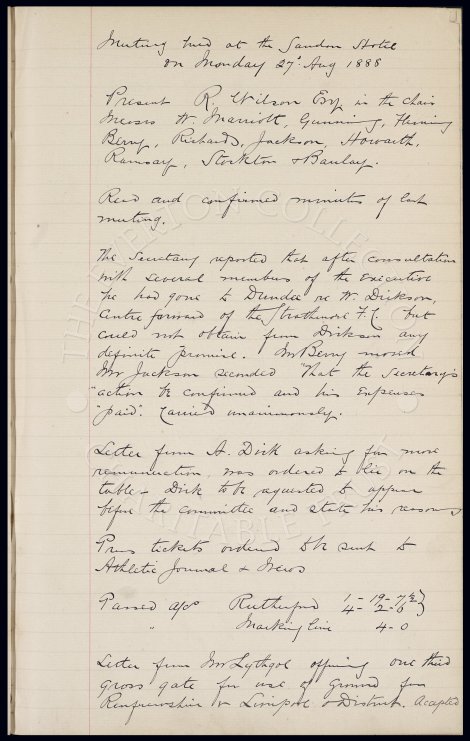 Meeting held at the Sandon Hotel
on Monday 27th Aug 1888
Present R. Wilson Esq in the Chair
Messrs W. Marriott, Gunning, Fleming
Berry, Richards, Jackson, Howarth,
Ramsay, Stockton & Barclay.
Read and confirmed minutes of last
meeting.
The Secretary reported that after consultation
with several members of the Executive
he had gone to Dundee re W. Dickson,
Centre forward of the Strathmore F.C. but
could not obtain from Dickson any
definite promise. Mr Berry moved
Mr Jackson seconded "That the Secretary's
"action be confirmed and his Expenses
"paid". Carried unanimously.
Letter from A. Dick asking for more
remuneration, was ordered to lie on the
table - Dick to be requested to appear
before the committee and state his reasons
Press tickets ordered to be sent to
Athletic Journal & News
Passed a/cs Rutherford 1-19-7½
4-2-6
" Marking line 4-0
Letter from Mr Lythgoe offering one third
Gross gate for use of Ground for
Renfrewshire v Liverpool & District. Accepted
THE EVERTON COLLECTION
CHARITABLE TRUST